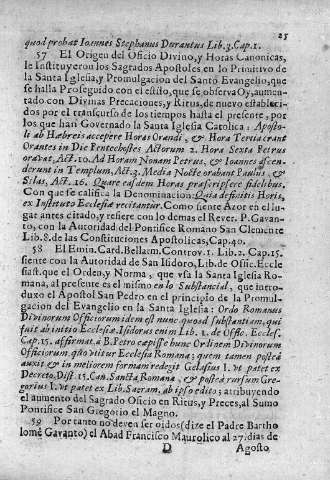 25
quod probat Ioannes Stephanus Durantus Lib.3.Cap.1.
57 El Origen del Oficio Divino, y Horas Canonicas,
le Instituyeron los Sagrados Apostoles en lo Primitivo de
la Santa Iglesia, y Promulgacion del Santo Evangelio, que
se halla Proseguido con el estilo, que se observa Oy, aumen-
tado con Divinas Precaciones, y Ritus, de nuevo estableci-
dos por el transcurso de los tiempos hasta el presente, por
los que han Governado la Santa Iglesia Catolica: Aposto-
li ab Hæbreis accepere Horas Orandi, & Hora Tertia erant
Orantes in Die Pentechostes Actorum 2. Hora Sexta Petrus
orabat, Act.10. Ad Horam Nonam Petrus, & Ioannes ascen-
derunt in Templum, Act.3. Media Nocte orabant Paulus, &
Silas, Act.16. Quare easdem Horas præscripsere fidelibus.
Con que se califica la Denominacion: Quia de istis Horis,
ex Instituto Ecclesiæ recitantur. Como siente Azor en el lu-
gar antes citado, y refiere con lo demas el Rever. P. Gavan-
to, con la Autoridad del Pontifice Romano San Clemente
Lib.8. de las Constituciones Apostolicas, Cap.40.
58 El Emin. Card. Bellarm. Controv. 1. Lib. 2. Cap.15.
siente con la Autoridad de San Isidoro, Lib. de Offic. Eccle
siast. que el Orden, y Norma, que usa la Santa Iglesia Ro-
mana, al presente es el mismo en lo Substancial, que intro-
duxo el Apostol San Pedro en el principio de la Promul-
gacion del Evangelio en la Santa Iglesia: Ordo Romanus
Divinorum Officiorum idem est nunc quoad substantiam, qui
fuit ab initio Ecclesiæ. Isidorus enim Lib. 1. de Offic. Eccles.
Cap.15. affirmat à B. Petro cæpisse hunc Ordinem Divinorum
Officiorum quo utitur Ecclesia Romana; quem tamen posteà
auxit & in meliorem formam redegit Gelasius I. vt patet ex
Decreto. Dist. 15. Can. Sancta Romana, & posteà rursum Gre-
gorius I. vt patet ex Lib. Sacram. ab ipso edito; atribuyendo
el aumento del Sagrado Oficio en Ritus, y Preces, al Sumo
Pontifice San Gregorio el Magno.
59 Por tanto no deven ser oidos (dize el Padre Bartho
lomè Gavanto) el Abad Francisco Maurolico al 27. dias de
D Agosto